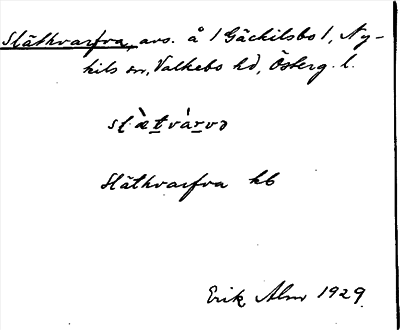 Släthvarfva, avs. å /Gäckilsbo/, Ny-
kils sn, Valkebo hd, Österg. l.
slæ̀tvàrvə
Släthvarfva hb
Erik Alm 1929.